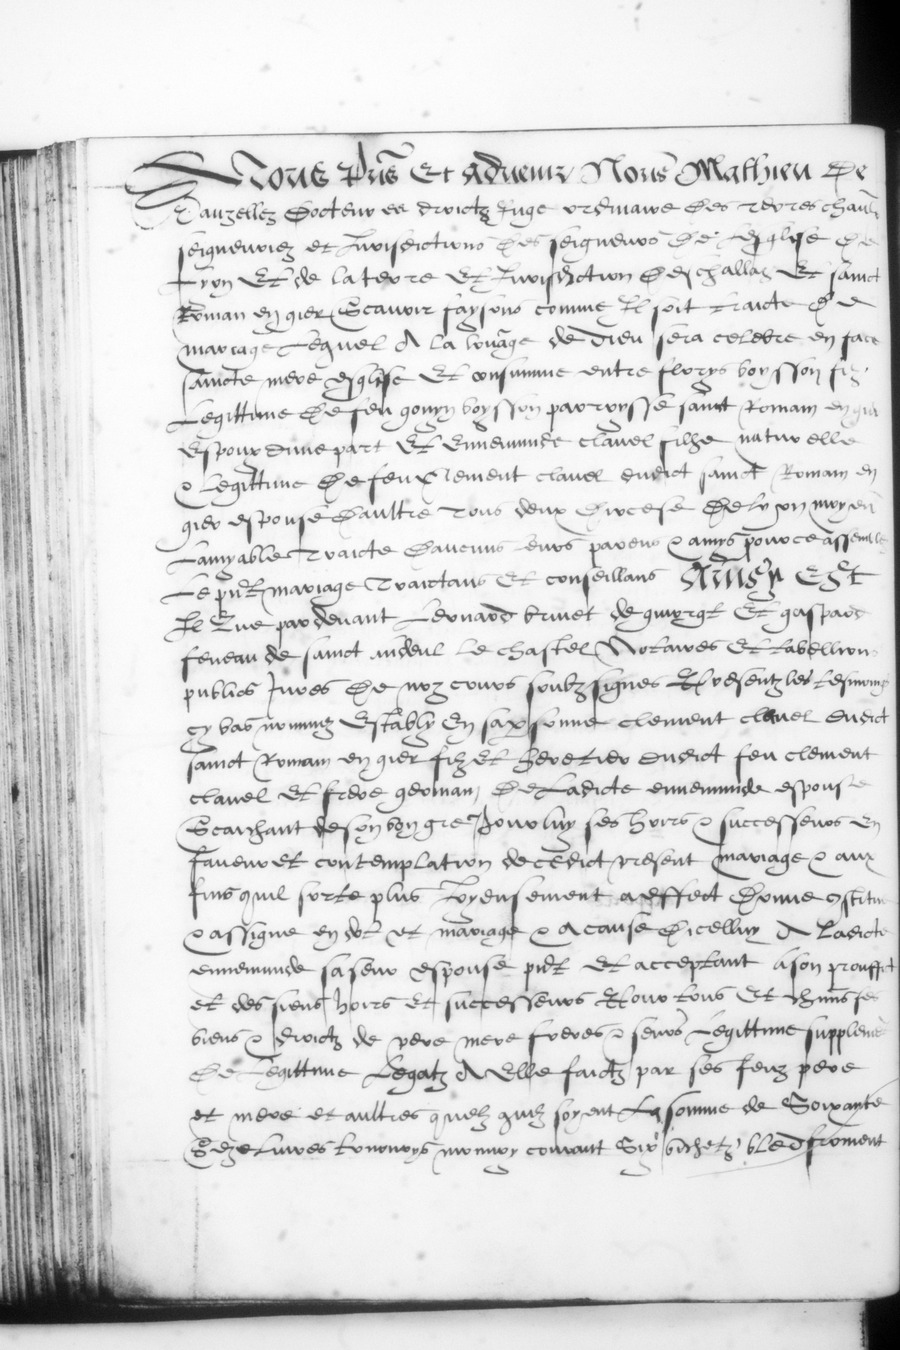 A Tous Pns Et advenir Nous Mathieu De
Vauzelles Docteur es droictz Juge ordinaire Des terres chan
seigneuries et Jurisdictions Des seigneurs De Lesglise De
Lyon Et de la terre Et Jurisdiction Deschallas Et sainct
Romain en gier Scavoir faysons comme Il soit traicte De
mariage Lequel A la louãge de Dieu sera celebre en face
saincte mere esglise Et consumme entre florys boysson filz
Legittime De feu gonyn boysson parroysse sainct Romain en gier
espoux dune part Et Ennemunde clavel filhe naturelle
& Legittime De feu Clement clavel dudict sainct Romain en
gier espouse Daultre Tous deux Diocese De lyon moyen
Lamyable Traicte Daucuns Leurs parens & amys pour ce assembles
Le pñt mariage Traictans Et conseillans Ainsy Est
Il Que par devant Leonard brunet de Et gaspard
feneau de sainct andeul le chastel Notaires Et tabellions
publics Jures De noz cours soubz signes Et presentz les tesmoings
cy bas nommez Estably En sa personne clement clavel dudict
sainct Romain en gier filz Et heretier dudict feu clement
clavel Et frere germain De Ladicte ennemunde espouse
Scaichant de son bon gre Pour luy ses hoirs & successeurs En
faveur et contemplation de cedict present mariage & aux
fins quil sorte plus Joyeusement a effect Donne cstitue
& assigne en dot et mariage & A cause Dicelluy A Ladicte
ennemunde sa seur espouse pñt Et acceptant a son prouffit
et des siens hoirs et successeurs Et pour tous Et chuns ses
biens & droictz de pere mere freres & seurs Legittime supplemẽt
De Legittime Legatz A Elle faictz par ses feuz pere
et mere et aultres quelz quilz soyent La somme de Soixante
Seze Livres tournoys monnoy courant Six bichetz bled froment